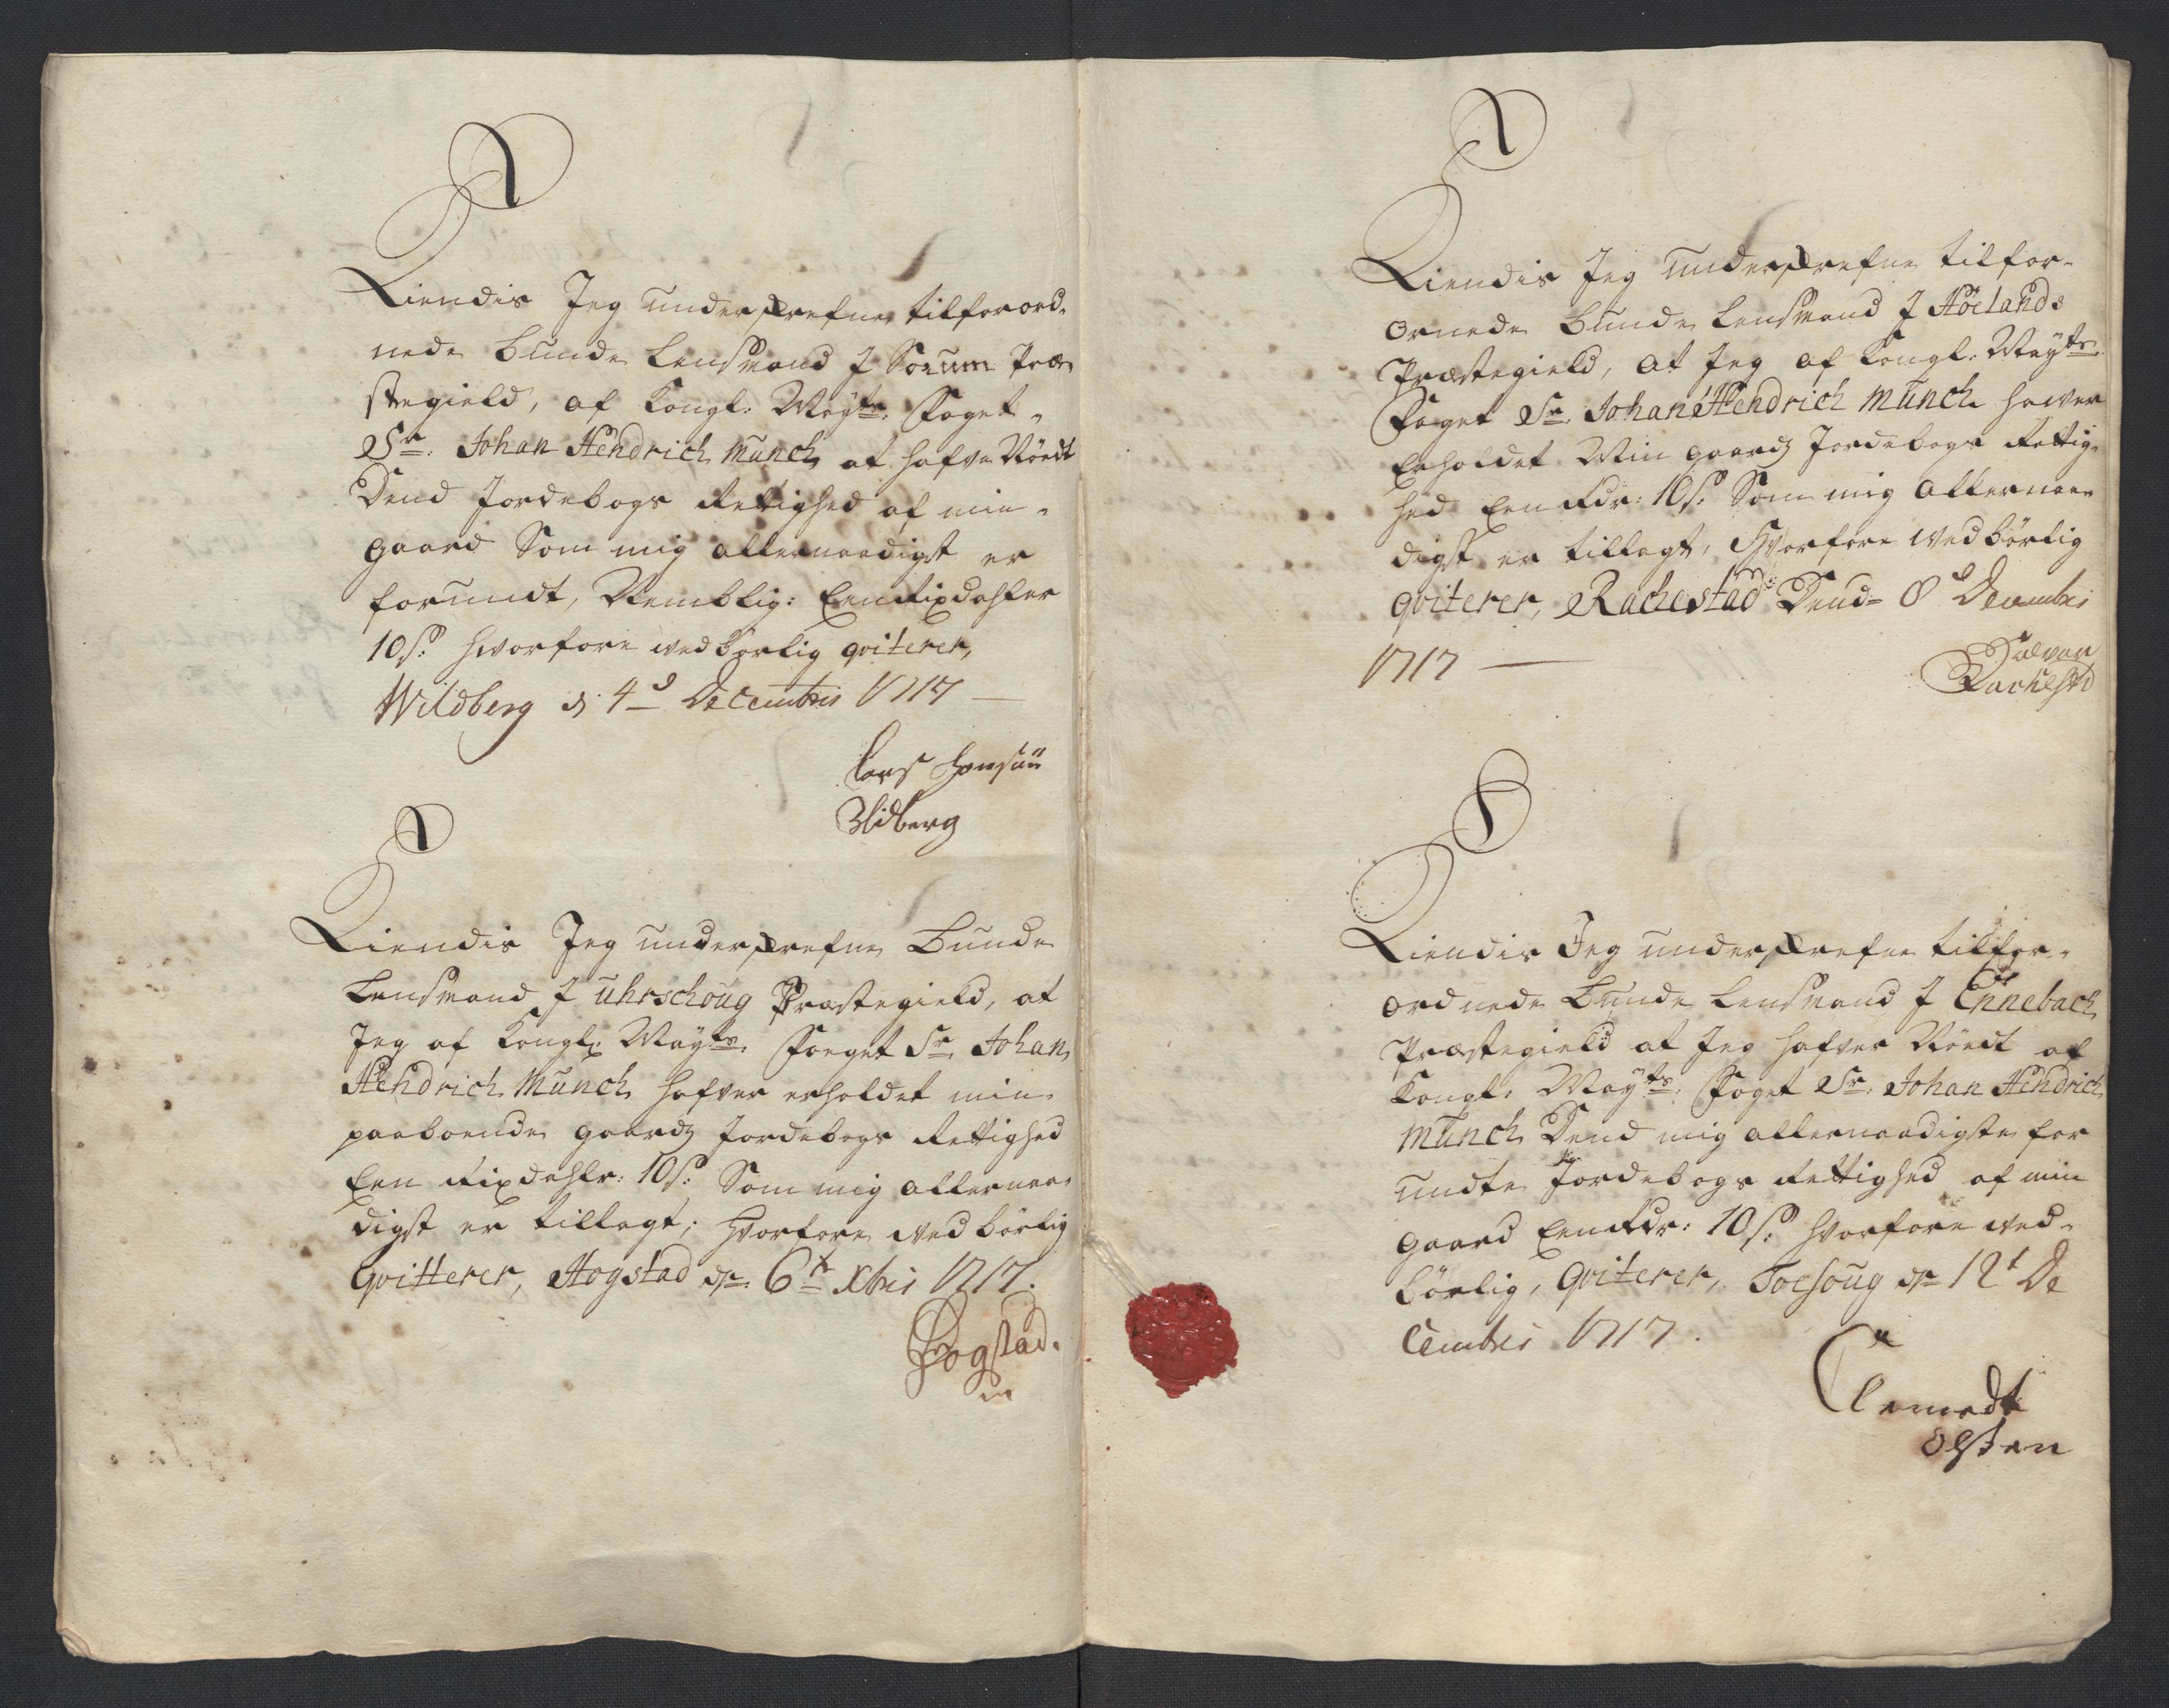 Kiendis Jeg underskrefne tilforord-
nede Bunde Lensmand J Sorum Præ
stegield, af Kongl: Mayts: Foget
Sr: Johan Hendrich Munch at hafve Nÿdt
Dend Jordebogs Rettighed af min
gaard Som mig allernaadigst er
forundt, Nemblig: Een Rixdahler
10 s: hvorfore ved börlig qviterer,
Wildberg d: 4d Decembris 1717
Lars
Vildberg
Kiendis Jeg underskrefne Bunde
Lensmand J Uhrschoug Præstegield, at
Jeg af Kongl: Mayts: Foeget Sr: Johan
Hendrich Munch hafver erholdet min
paaboende gaards Jordebogs Rettighed
Een Rixdahlr: 10 s: Som mig allernaa-
digst er tillagt; hvorfore ved börlig
Qvitterer, Hogstad dn: 6t Xbris 1717.
Hogstad.
Kiendis Jeg underskrefne tilfor-
ornede Bunde Lensmand J Höelands
Præstegield, at Jeg af Kongl: Mayts:
Foget Sr: Johan Hendrich Munch hawer
Erholdet Min gaards Jordebogs Rettig-
hed Een Rdr: 10 s: Som mig allernaa-
digst er tillagt, Hvorfore ved börlig
qviterer, Rachestad Dend 8d Decembris
1717
Rachestad
Kiendis Jeg underskrefne tilfor-
ordnede Bunde Lensmand J Ennebach
Præstegield at Jeg hafver Nÿdt af
Kongl: Mayts: Foget Sr: Johan Hendrich
Munch Dend mig allernaadigste for
undte Jordebogs Rettighed af min
gaard Een Rdr: 10 s: hvorfore ved-
börlig, Qviterer, dn 12t De
cembris 1717.
Clemedt
Olsen